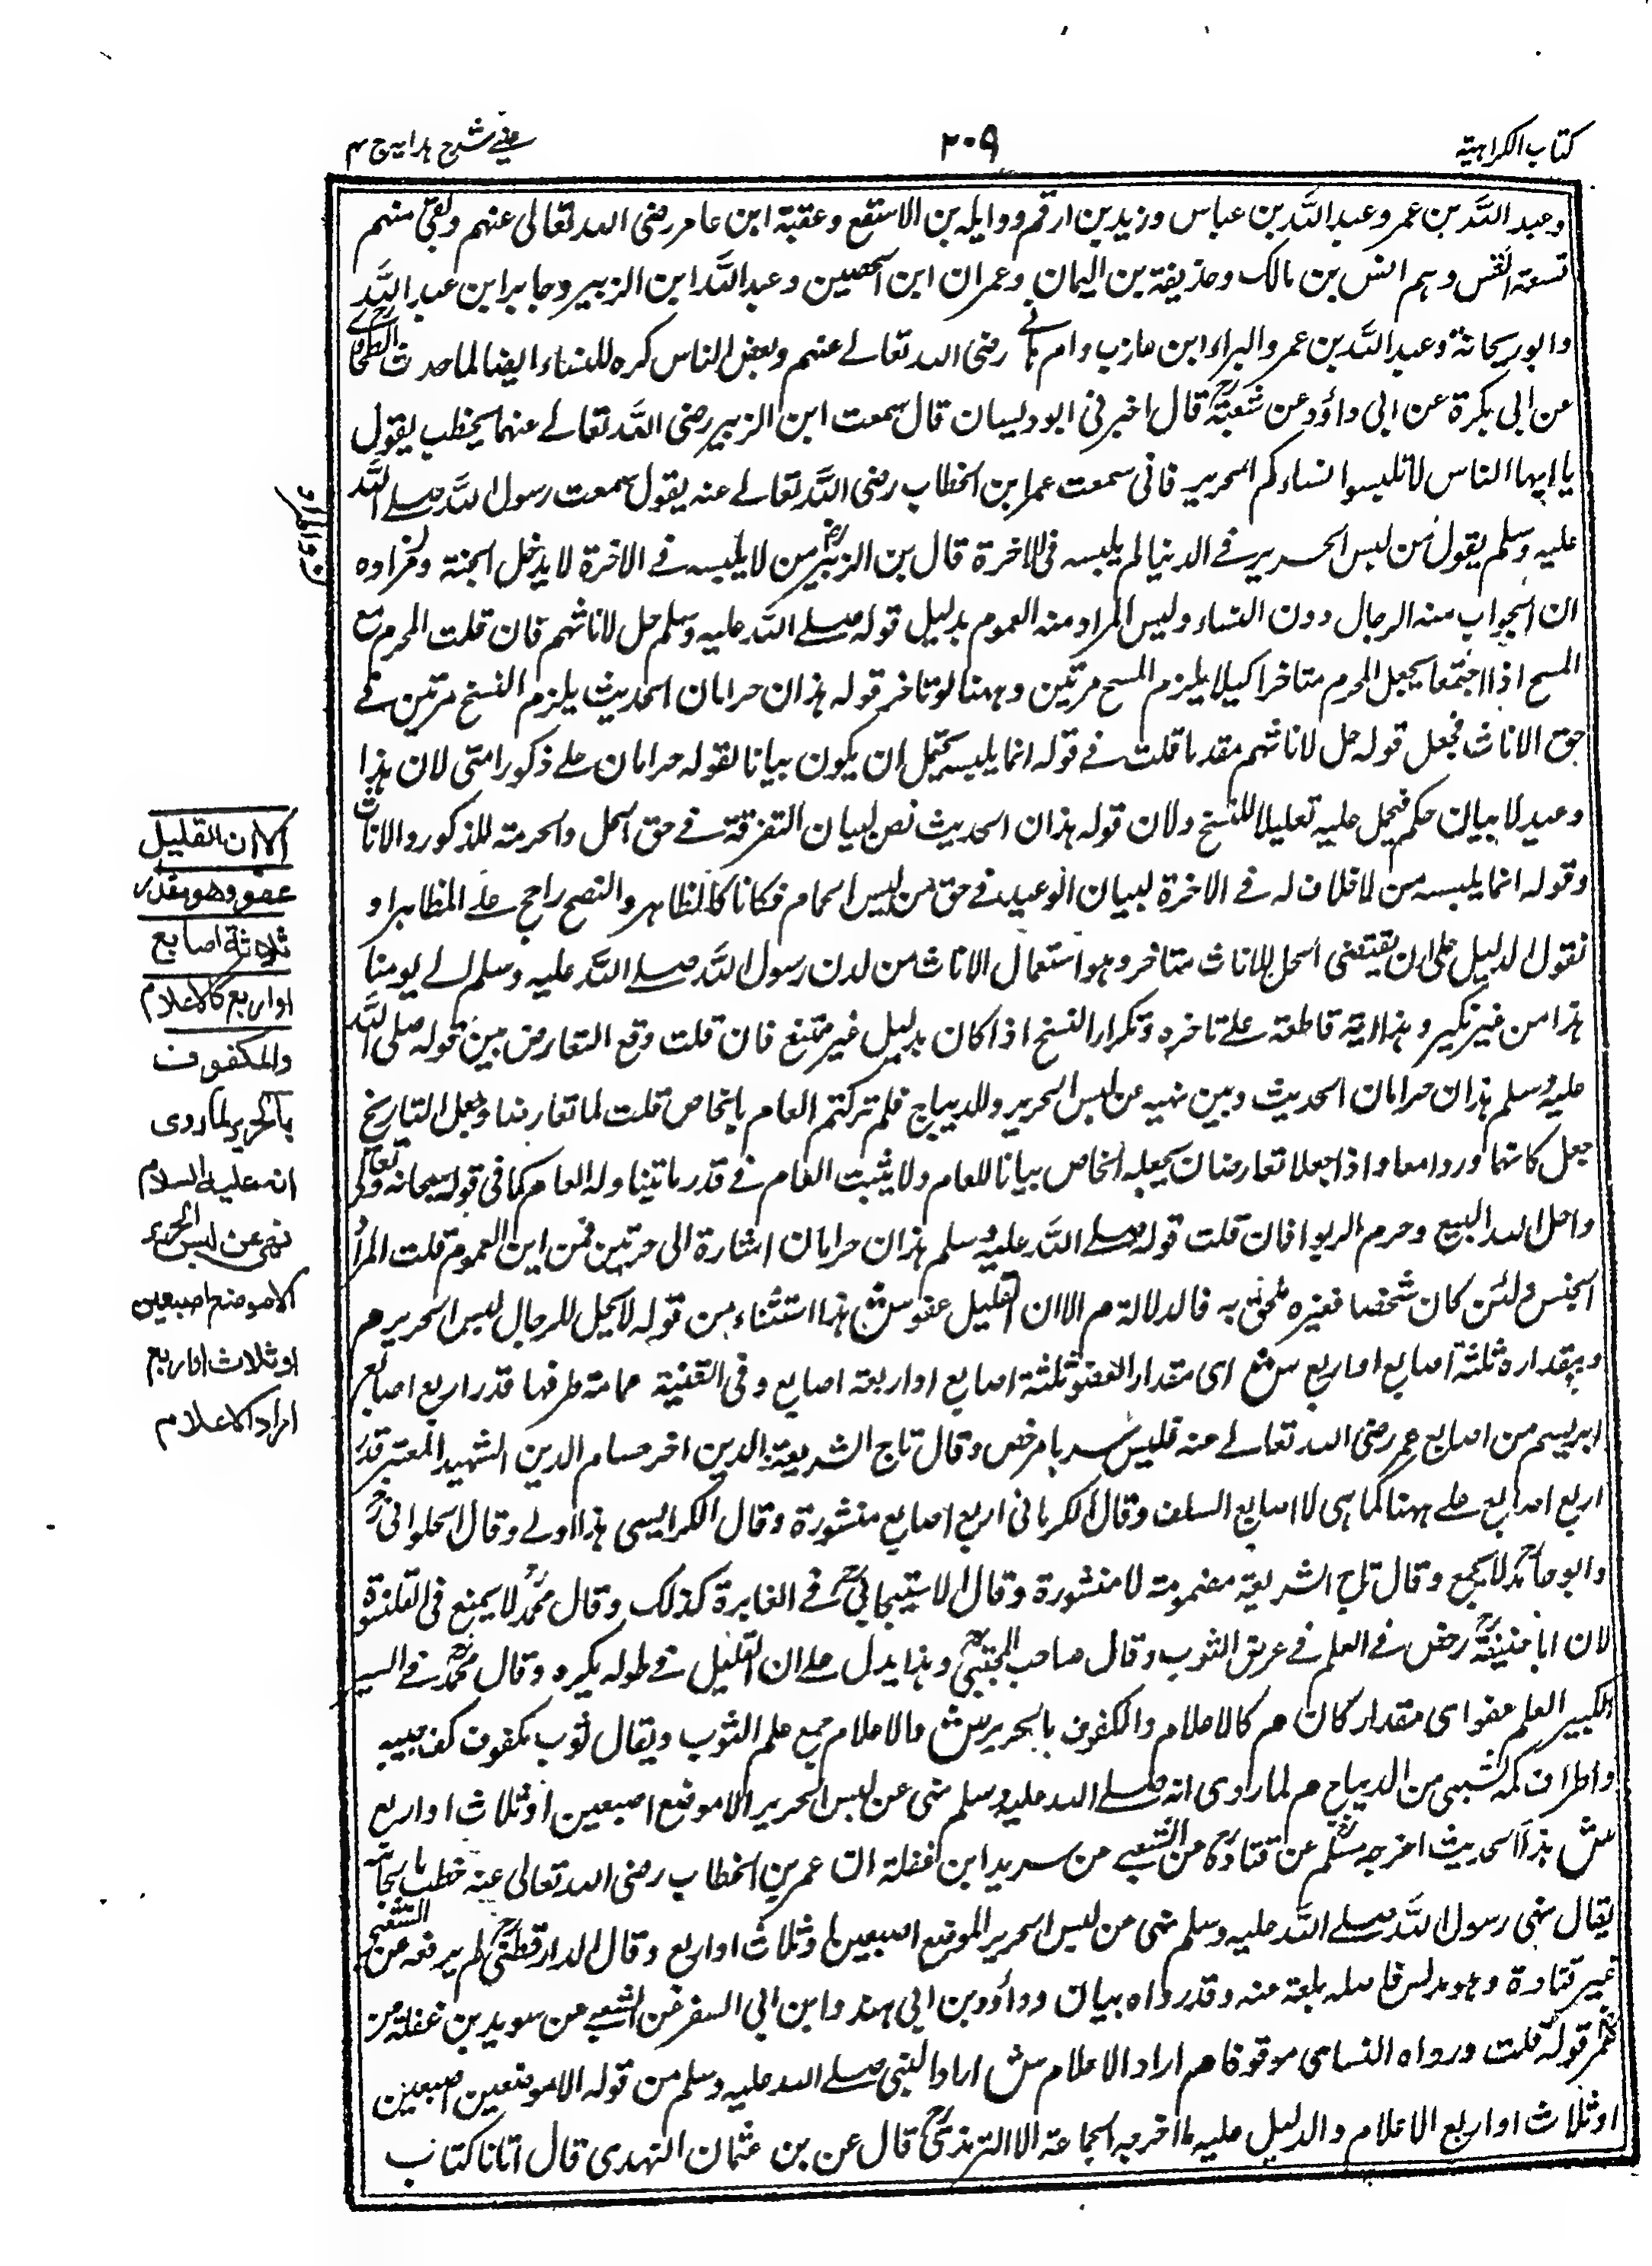 كتاب الكراهية
٢٠٩
عينى شرح هدايه ج ٤
وعبد الله بن عمر وعبد الله بن عباس وزيد بن ارقم ووايله بن الاسقع وعقبة ابن عامر رضى الله تعالى عنهم وبقى منهم
تسعة انفس وهم انس بن مالك وحذيفة بن اليمان وعمران ابن الحصين وعبد الله ابن الزبير وجابر ابن عبد الله
وابو ريحانة وعبد الله بن عمر والبراء ابن عازب وام هانى رضى الله تعالى عنهم وبعض الناس كره للنساء ايضا لما حدث الطحاوى
عن ابى بكرة عن ابى داؤد عن شعبة قال اخبرنى ابو ذبيان قال سمعت ابن الزبير رضى الله تعالى عنهما يخطب يقول
يا ايها الناس لا تلبسوا نساءكم الحرير فانى سمعت عمر بن الخطاب رضى الله تعالى عنه يقول سمعت رسول الله صلى الله
عليه وسلم يقول من لبس الحرير فى الدنيا لم يلبسه فى الاخرة قال بن الزبير من لا يلبسه فى الاخرة لا يدخل الجنة
ان الجواب منه الرجال دون النساء وليس المراد منه العموم بدليل قوله صلى الله عليه وسلم حل لاناثهم فان قلت المحرم مع
المسح اذا اجتمعا يجعل المحرم متاخرا كيلا يلزم المسح مرتين وههنا لو تاخر قوله هذان حرامان الحديث يلزم النسخ مرتين فى
حق الاناث فجعل قوله حل لاناثهم مقدما قلت فى قوله انما يلبسه يحتمل ان يكون بيانا لقوله حرامان على ذكور امتى لان هذا
وعيد لا بيان حكم فيحمل عليه تعليلا للنسخ ولان قوله هذان الحديث نص لبيان التفرقة فى حق الحل والحرمة للذكور والاناث
وقوله انما يلبسه من لا خلاف له فى الاخرة لبيان الوعيد فى حق من لبس الحمام فكانا كالظاهر والنصح راجح على الظاهر او
نقول الدليل على ان يقتضى الحل للاناث متاخر وهو استعمال الاناث من لدن رسول الله صلى الله عليه وسلم الى يومنا
هذا من غير نكير وهذا اية قاطعة على تاخره وتكرار النسخ اذا كان بدليل غير ممتنع فان قلت وقع التعارض بين قوله صلى الله
عليه وسلم هذان حرامان الحديث وبين نهيه عن لبس الحرير والديباج فلم تركتم العام بالخاص قلت لما تعارضا وجهل التاريخ
جعل كانهما وردا معا واذا جعلا تعارضا يجعل الخاص بيانا للعام ولا يثبت العام فى قدر ما تناوله العام كما فى قوله سبحانه وتعالى
واحل الله البيع وحرم الربوا فان قلت قوله صلى الله عليه وسلم هذان حرامان اشارة الى حرتين فمن اين العموم قلت المراد
الجنس ولئن كان شخصا فغيره ملحق به فالدلالة م الا ان القليل عفو ش هذا استثناء من قوله لا يحل للرجال لبس الحرير م
وبمقداره ثلثة اصابع او اربع ش اى مقدار العفو ثلثة اصابع او اربعة اصابع وفى القنية عمامة طرفها قدر اربع اصابع
ابريسم من اصابع عمر رضى الله تعالى عنه فليس ... مرخص وقال تاج الشريعة ... حسام الدين الشهيد المعتبر قدر
اربع اصابع على ههنا كما هى لا اصابع السلف وقال الكرمانى اربع اصابع منشورة وقال الكرابيسى هذا اولى وقال الحلوانى
وابو حامد لا يجمع وقال تاج الشريعة مضمومة لا منشورة وقال الاسبيجابى فى الغابرة كذلك وقال محمد لا يمنع فى القلنسوة
لان ابا حنيفة رخص فى العلم فى عرض الثوب وقال صاحب المجتبى وهذا يدل على ان القليل فى طوله يكره وقال محمد فى السير
الكبير العلم عفو اى مقدار كان م كالاعلام والمكفوف بالحرير ش والاعلام جمع علم الثوب ويقال ثوب مكفوف كف جيبه
واطراف كمه بشئى من الديباج م لما روى انه صلى الله عليه وسلم نهى عن لبس الحرير الا موضع اصبعين او ثلاث او اربع
ش هذا الحديث اخرجه مسلم عن قتادة عن الشعبى عن سويد ابن غفلة ان عمر بن الخطاب رضى الله تعالى عنه خطب بالجابية
فقال نهى رسول الله صلى الله عليه وسلم نهى عن لبس الحرير الا موضع اصبعين او ثلاث او اربع وقال الدارقطنى لم يرفعه عن الشعبى
غير قتادة وهو مدلس فلعله بلغه عنه وقد رواه بيان وداؤد بن ابى هند وابن ابى السفر عن الشعبى عن سويد بن غفلة عن
عمر قوله قلت ورواه النسائى موقوفا م اراد الاعلام ش اراد النبى صلى الله عليه وسلم من قوله الا موضعين اصبعين
او ثلاث او اربع الاعلام والدليل عليه ما اخرجه الجماعة الا الترمذى قال عن بن عثمان النهدى قال اتانا كتاب
الا ان القليل
عفو وهو مقدار
ثلاثة اصابع
او اربع كالاعلام
والمكفوف
بالحرير لما روى
انه عليه السلام
نهى عن لبس الحرير
الا موضع اصبعين
او ثلاث او اربع
اراد الاعلام